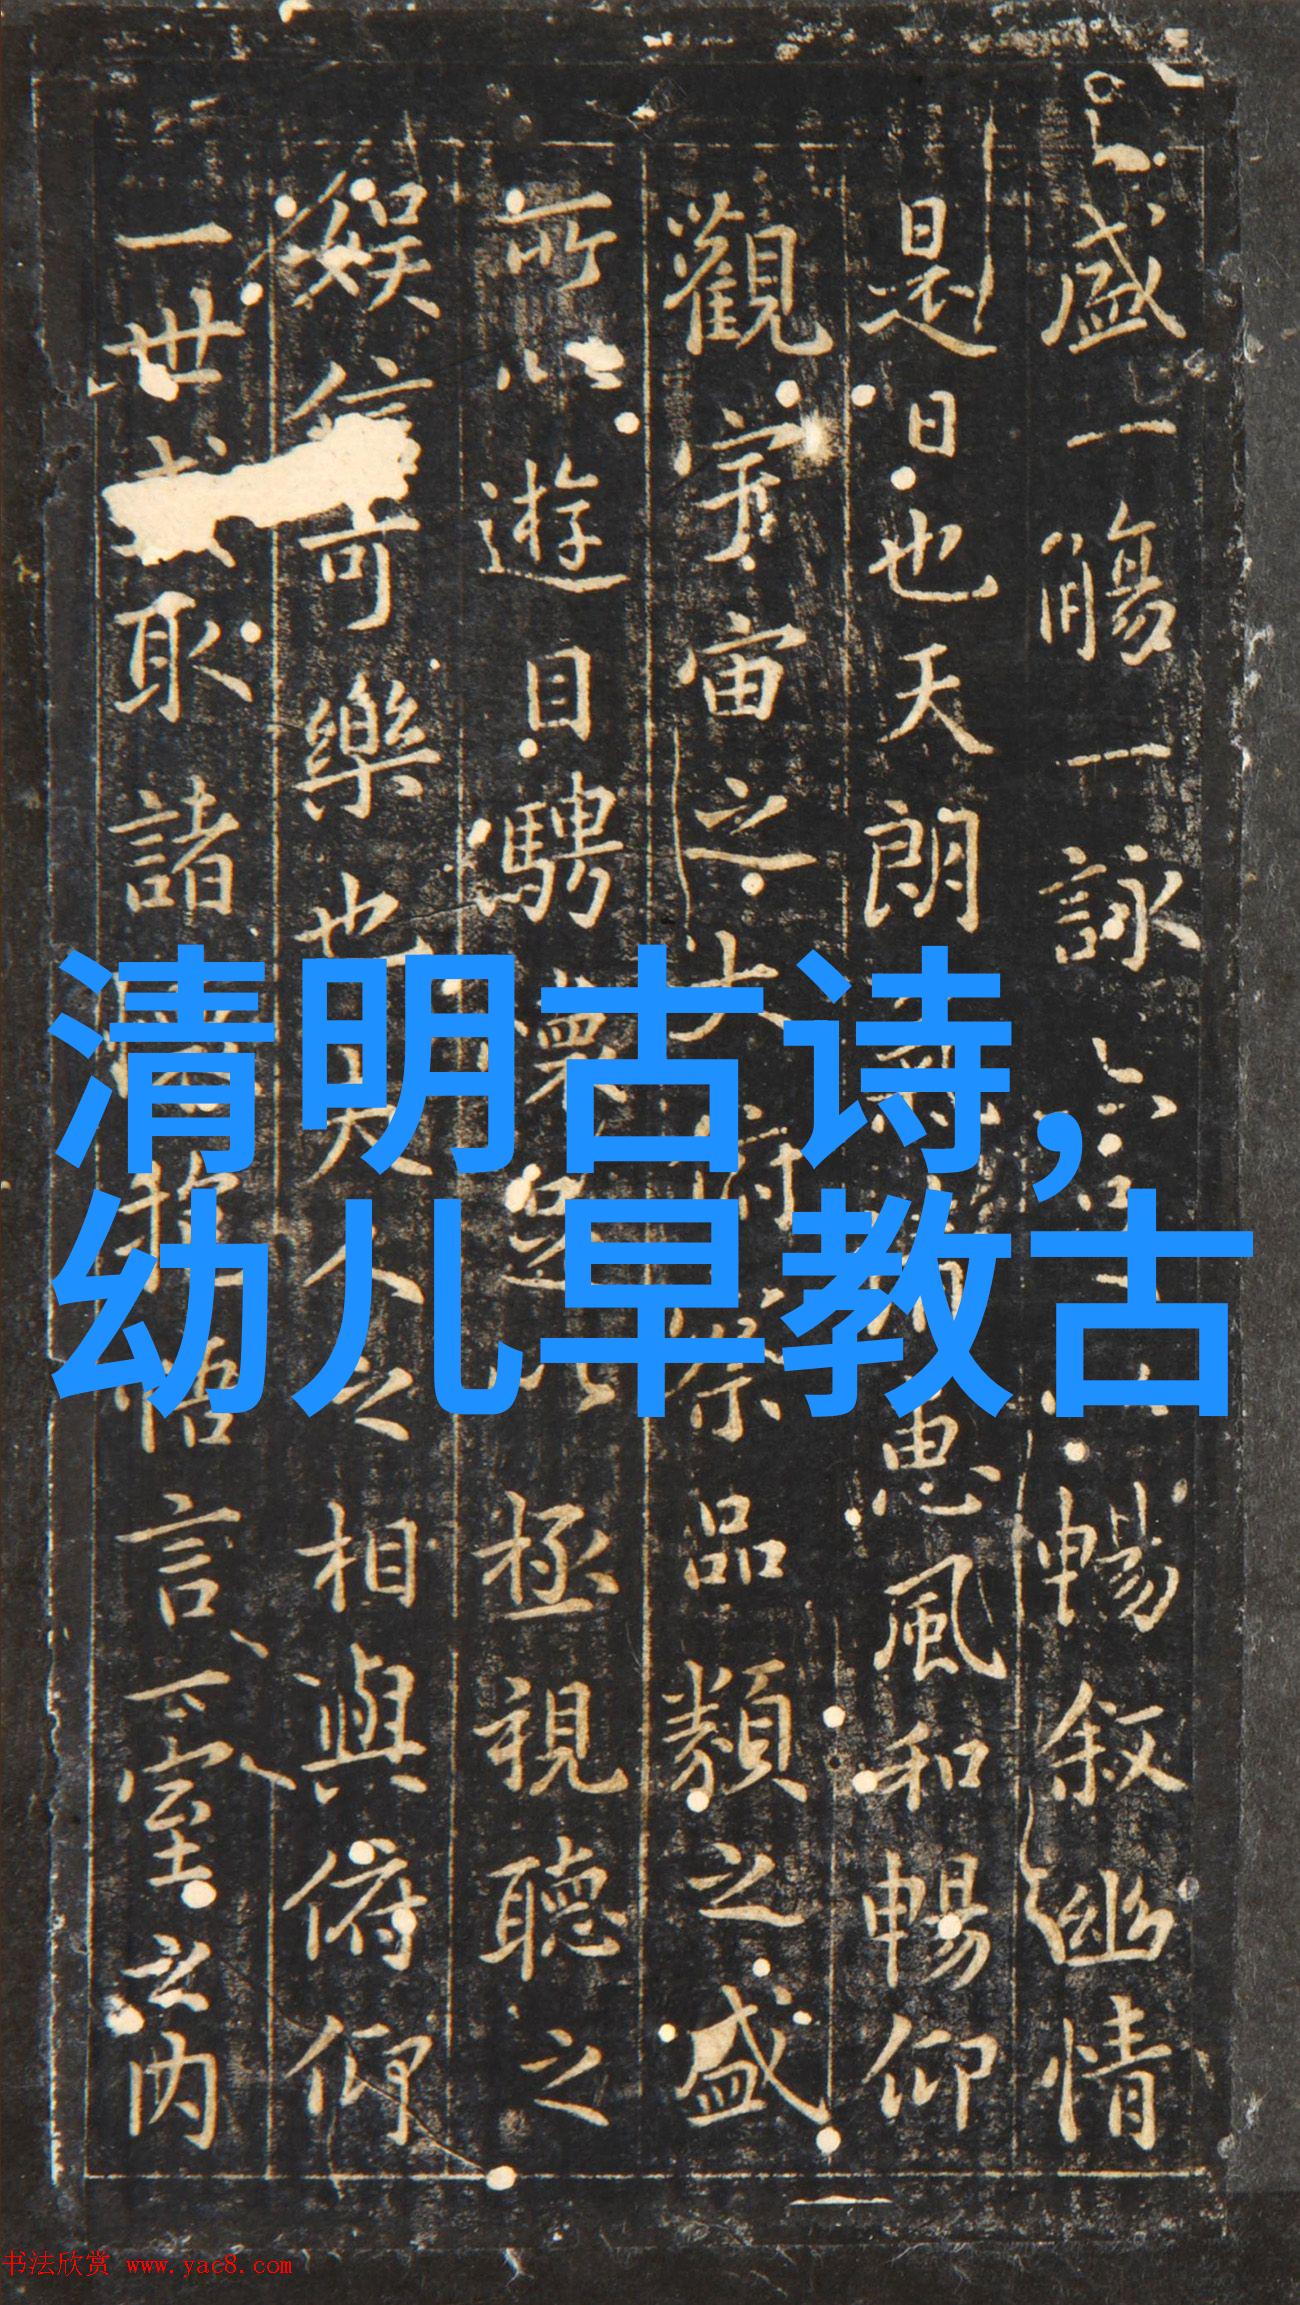 盛一觴一詠
暢叙幽情
是日也天朗
惠風和暢仰
觀宇宙之大
品類之盛
所以遊目騁懷
極視聽之
娱信可樂也夫人之相與俯仰
一世
取諸
悟言一室之内
清明古诗,
幼儿早教古
书法欣赏 www.yac8.com